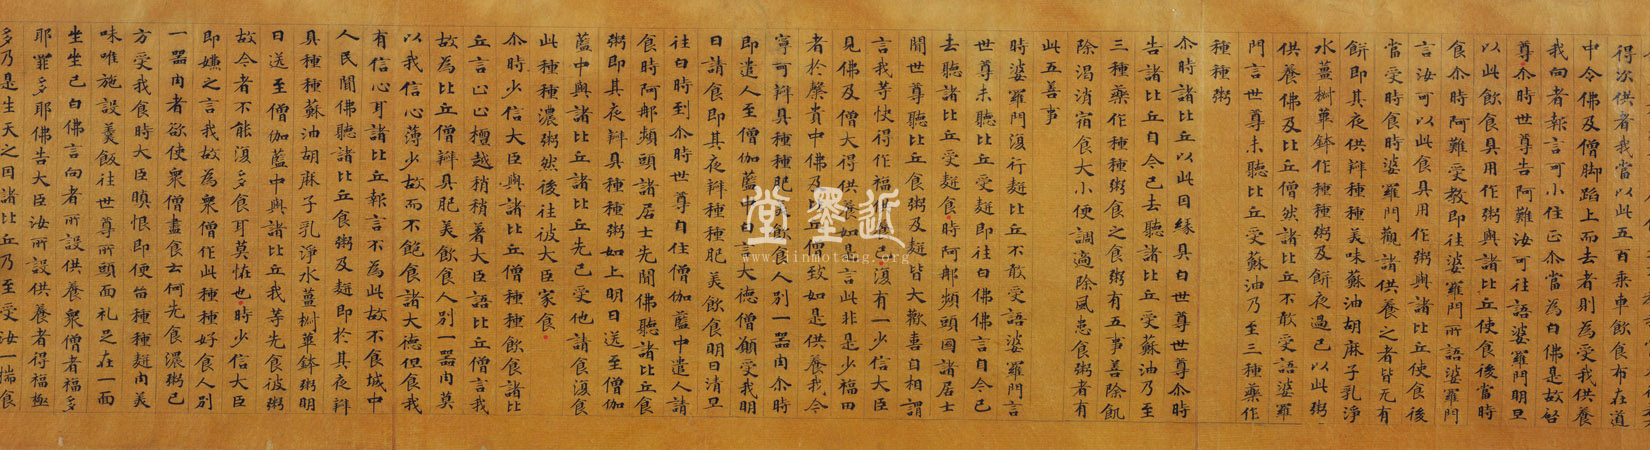 得次供者我當以此五百乘車飲食布在道
中令佛及僧脚蹈上而去者則為受我供養
我向者報言可小住正尒當為白佛是故啓
尊尒時世尊告阿難汝可往語婆羅門明旦
以此飲食具用作粥與諸比丘使食後當時
食尒時阿難受教即往婆羅門所語婆羅門
言汝可以此食具用作粥與諸比丘使食後
當受時食時婆羅門觀諸供養之者皆无有
餅即其夜供辦種種美味蘇油胡麻子乳淨
水薑椒蓽鉢作種種粥及餅夜過已以此粥
供養佛及比丘僧然諸比丘不敢受語婆羅
門言世尊未聽比丘受蘇油乃至三種藥作
種種粥
尒時諸比丘以此因緣具白世尊世尊尒時
告諸比丘自今已去聽諸比丘受蘇油乃至
三種藥作種種粥食之食粥有五事善除飢
除渴消宿食大小便調適除風患食粥者有
此五善事
時婆羅門復行麨比丘不敢受語婆羅門言
世尊未聽比丘受麨即往白佛佛言自今已
去聽諸比丘受麨食時阿那頻頭國諸居士
聞世尊聽比丘食粥及麨皆大歡喜自相謂
言我等快得作福供養復有一少信大臣
見佛及僧大得供養如是言此非是少福田
者於磬貴中佛及比丘僧致如是供養我今
寧可辦具種種肥美飲食人別一器肉尒時
即遣人至僧伽藍中白言大德僧願受我明
日請食即其夜辦種種肥美飲食明日清旦
往白時到尒時世尊自住僧伽藍中遣人請
食時阿那頻頭諸居士先聞佛聽諸比丘食
粥即其夜辦具種種粥如上明日送至僧伽
藍中與諸比丘諸比丘先已受他請食復食
此種種濃粥然後往彼大臣家食
尒時少信大臣與諸比丘僧種種飲食諸比
丘言止止檀越稍稍著大臣語比丘僧言我
故為比丘僧辦具肥美飲食人別一器肉莫
以我信心薄少故而不飽食諸大德但食我
有信心耳諸比丘報言不為此故不食城中
人民聞佛聽諸比丘食粥及麨即於其夜辦
具種種蘇油胡麻子乳淨水薑椒蓽鉢粥明
日送至僧伽藍中與諸比丘我等先食彼粥
故今者不能復多食耳莫怪也時少信大臣
即嫌之言我故為衆僧作此種種好食人別
一器肉者欲使衆僧盡食云何先食濃粥已
方受我食時大臣瞋恨即便留種種麨肉美
味唯施設羹飯往世尊所頭面礼足在一面
坐坐已白佛言向者所設供養衆僧者福多
耶罪多耶佛告大臣汝所設供養者得福極
多乃是生天之因諸比丘乃至受汝一揣食
近墨堂
www.jinmotang.org